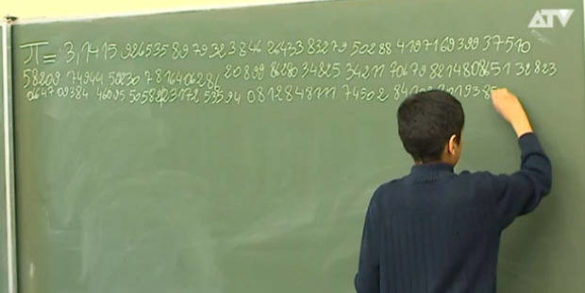 ATV
π = 3,1415 926535 89 79 323846 26433 83279 50288 41971 69399 37510
58209 74944 59230 78164 06286 20899 86280 34825 34211 70679 82148086513 2823
0664709384 46095 5058223172 53594 0812848111 74502